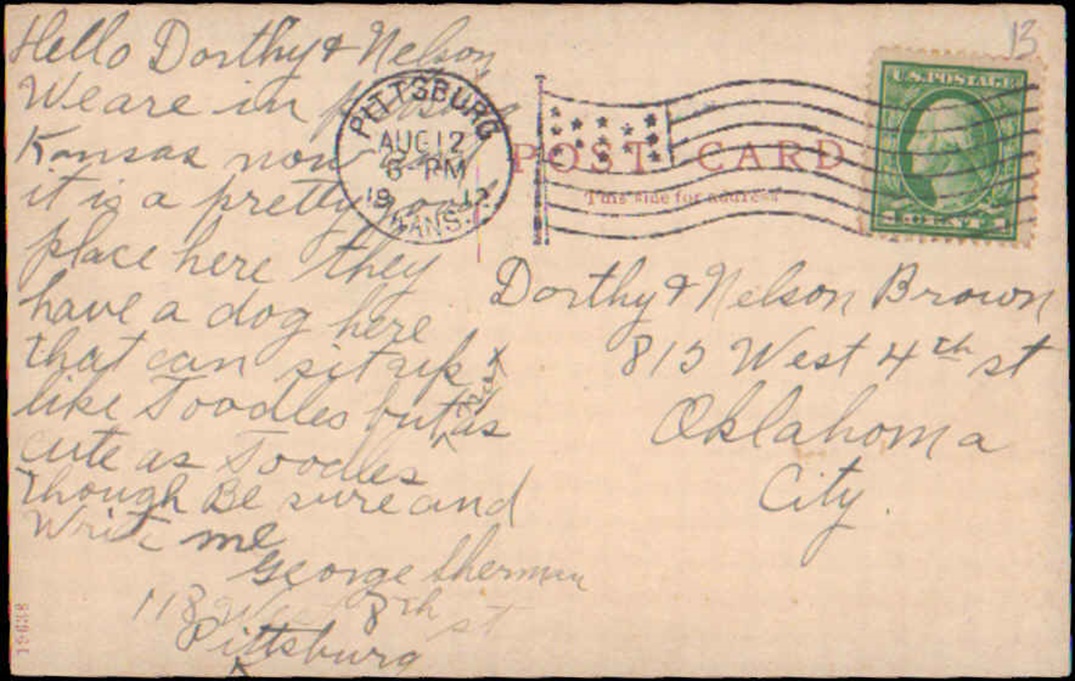 Hello Dorthy & Nelson
We are in
Kansas now and
it is a pretty
place here they
have a dog here
that can sit up
like Toodles but not as
cute as Toodles
though Be sure and
Write me
George Sherman
118 West 8th st
Pittsburg
PITTSBURG
AUG 12
6-PM
19 12
KANS.
POST CARD
This side for address
13
U.S. POSTAGE
1 CENT 1
Dorthy & Nelson Brown
815 West 4th st
Oklahoma
City.